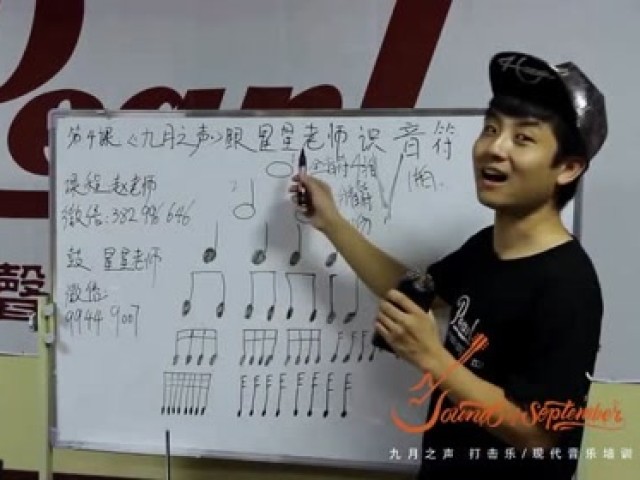 Pearl
第4课《九月之声》跟星星老师识音符
全音符4拍
课程 赵老师
微信:382986646
鼓 星星老师
微信:
9944 9007
Pearl
Sound of September
九月之声 打击乐/现代音乐培训